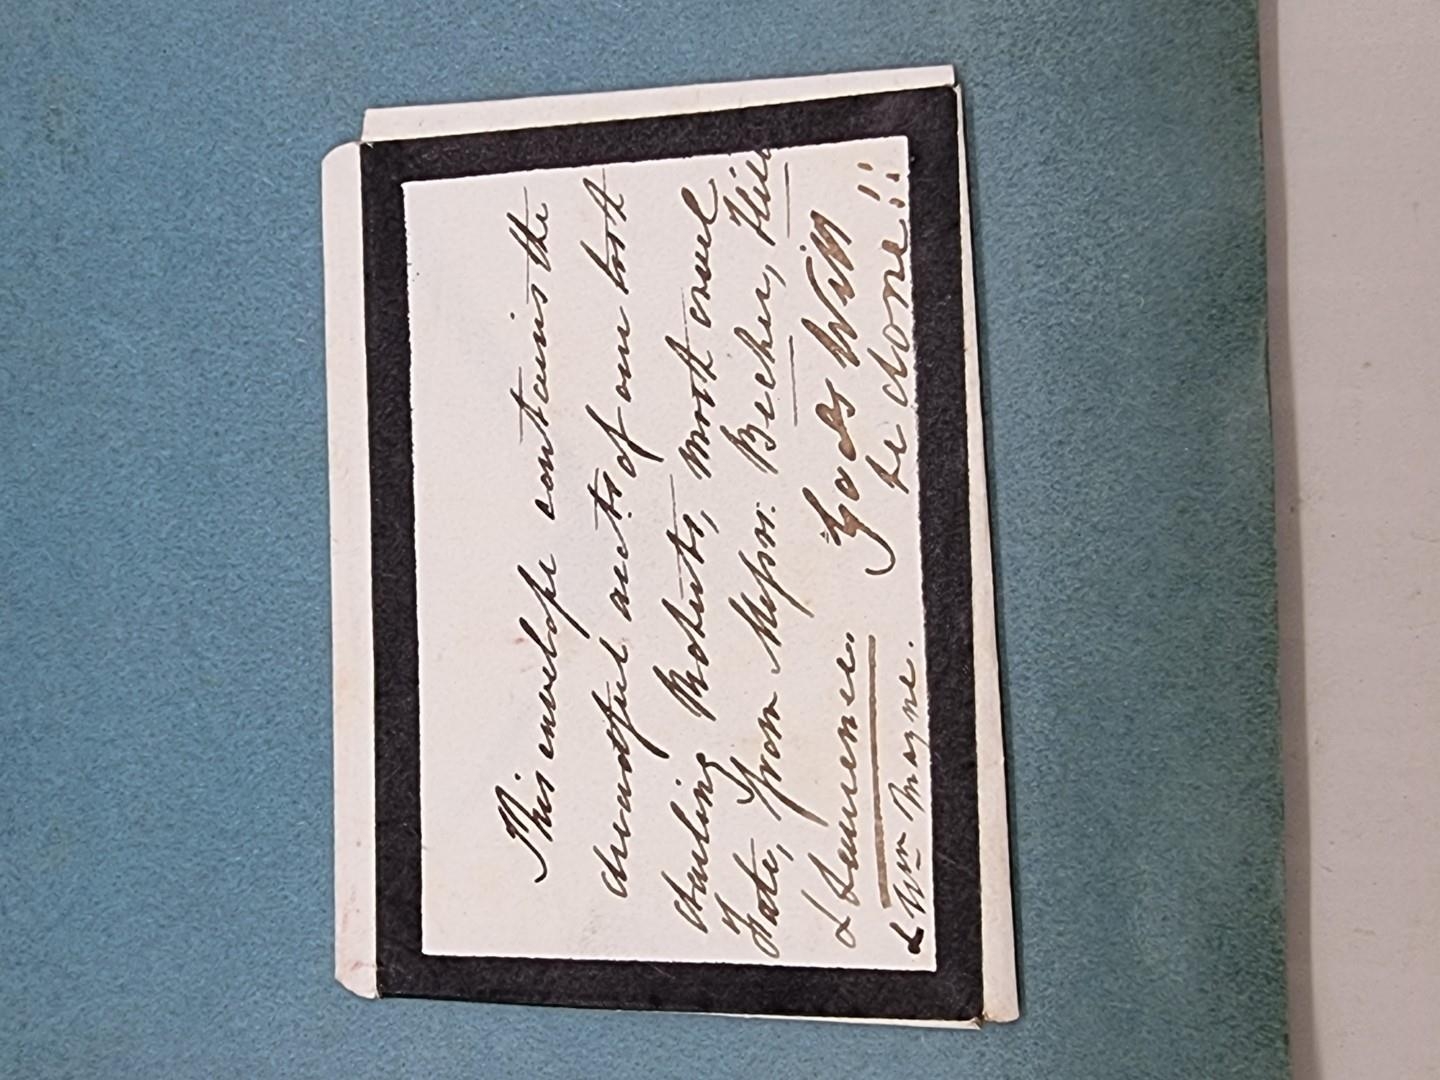 This envelope contains the
dreadful acct. of our lost
darling Roberts, most cruel
Fate, from Messrs. Becher, Hill
& Laurence. God's Will
be done!!!
& Wm Mayne.